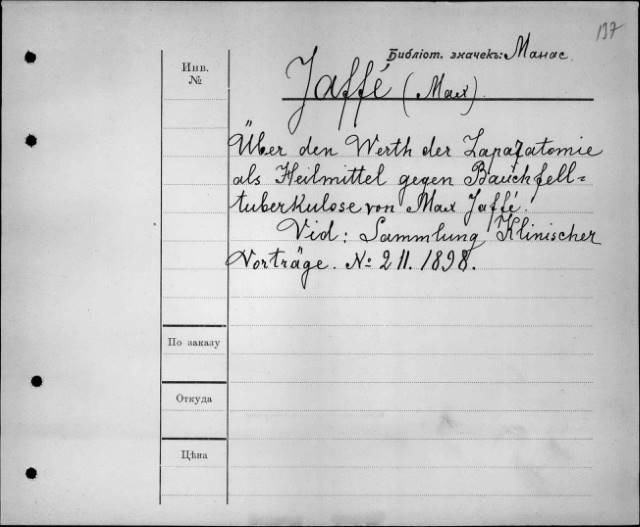 137
Библіот. значекъ: Манас.
Инв.
№
Jaffé (Max).
Über den Werth der Lapazatomie
als Heilmittel gegen Bauchfell=
tuberkulose von Max Jaffé.
Vid: Sammlung Klinischer
Vorträge. № 211. 1898.
По заказу
Откуда
Цѣна